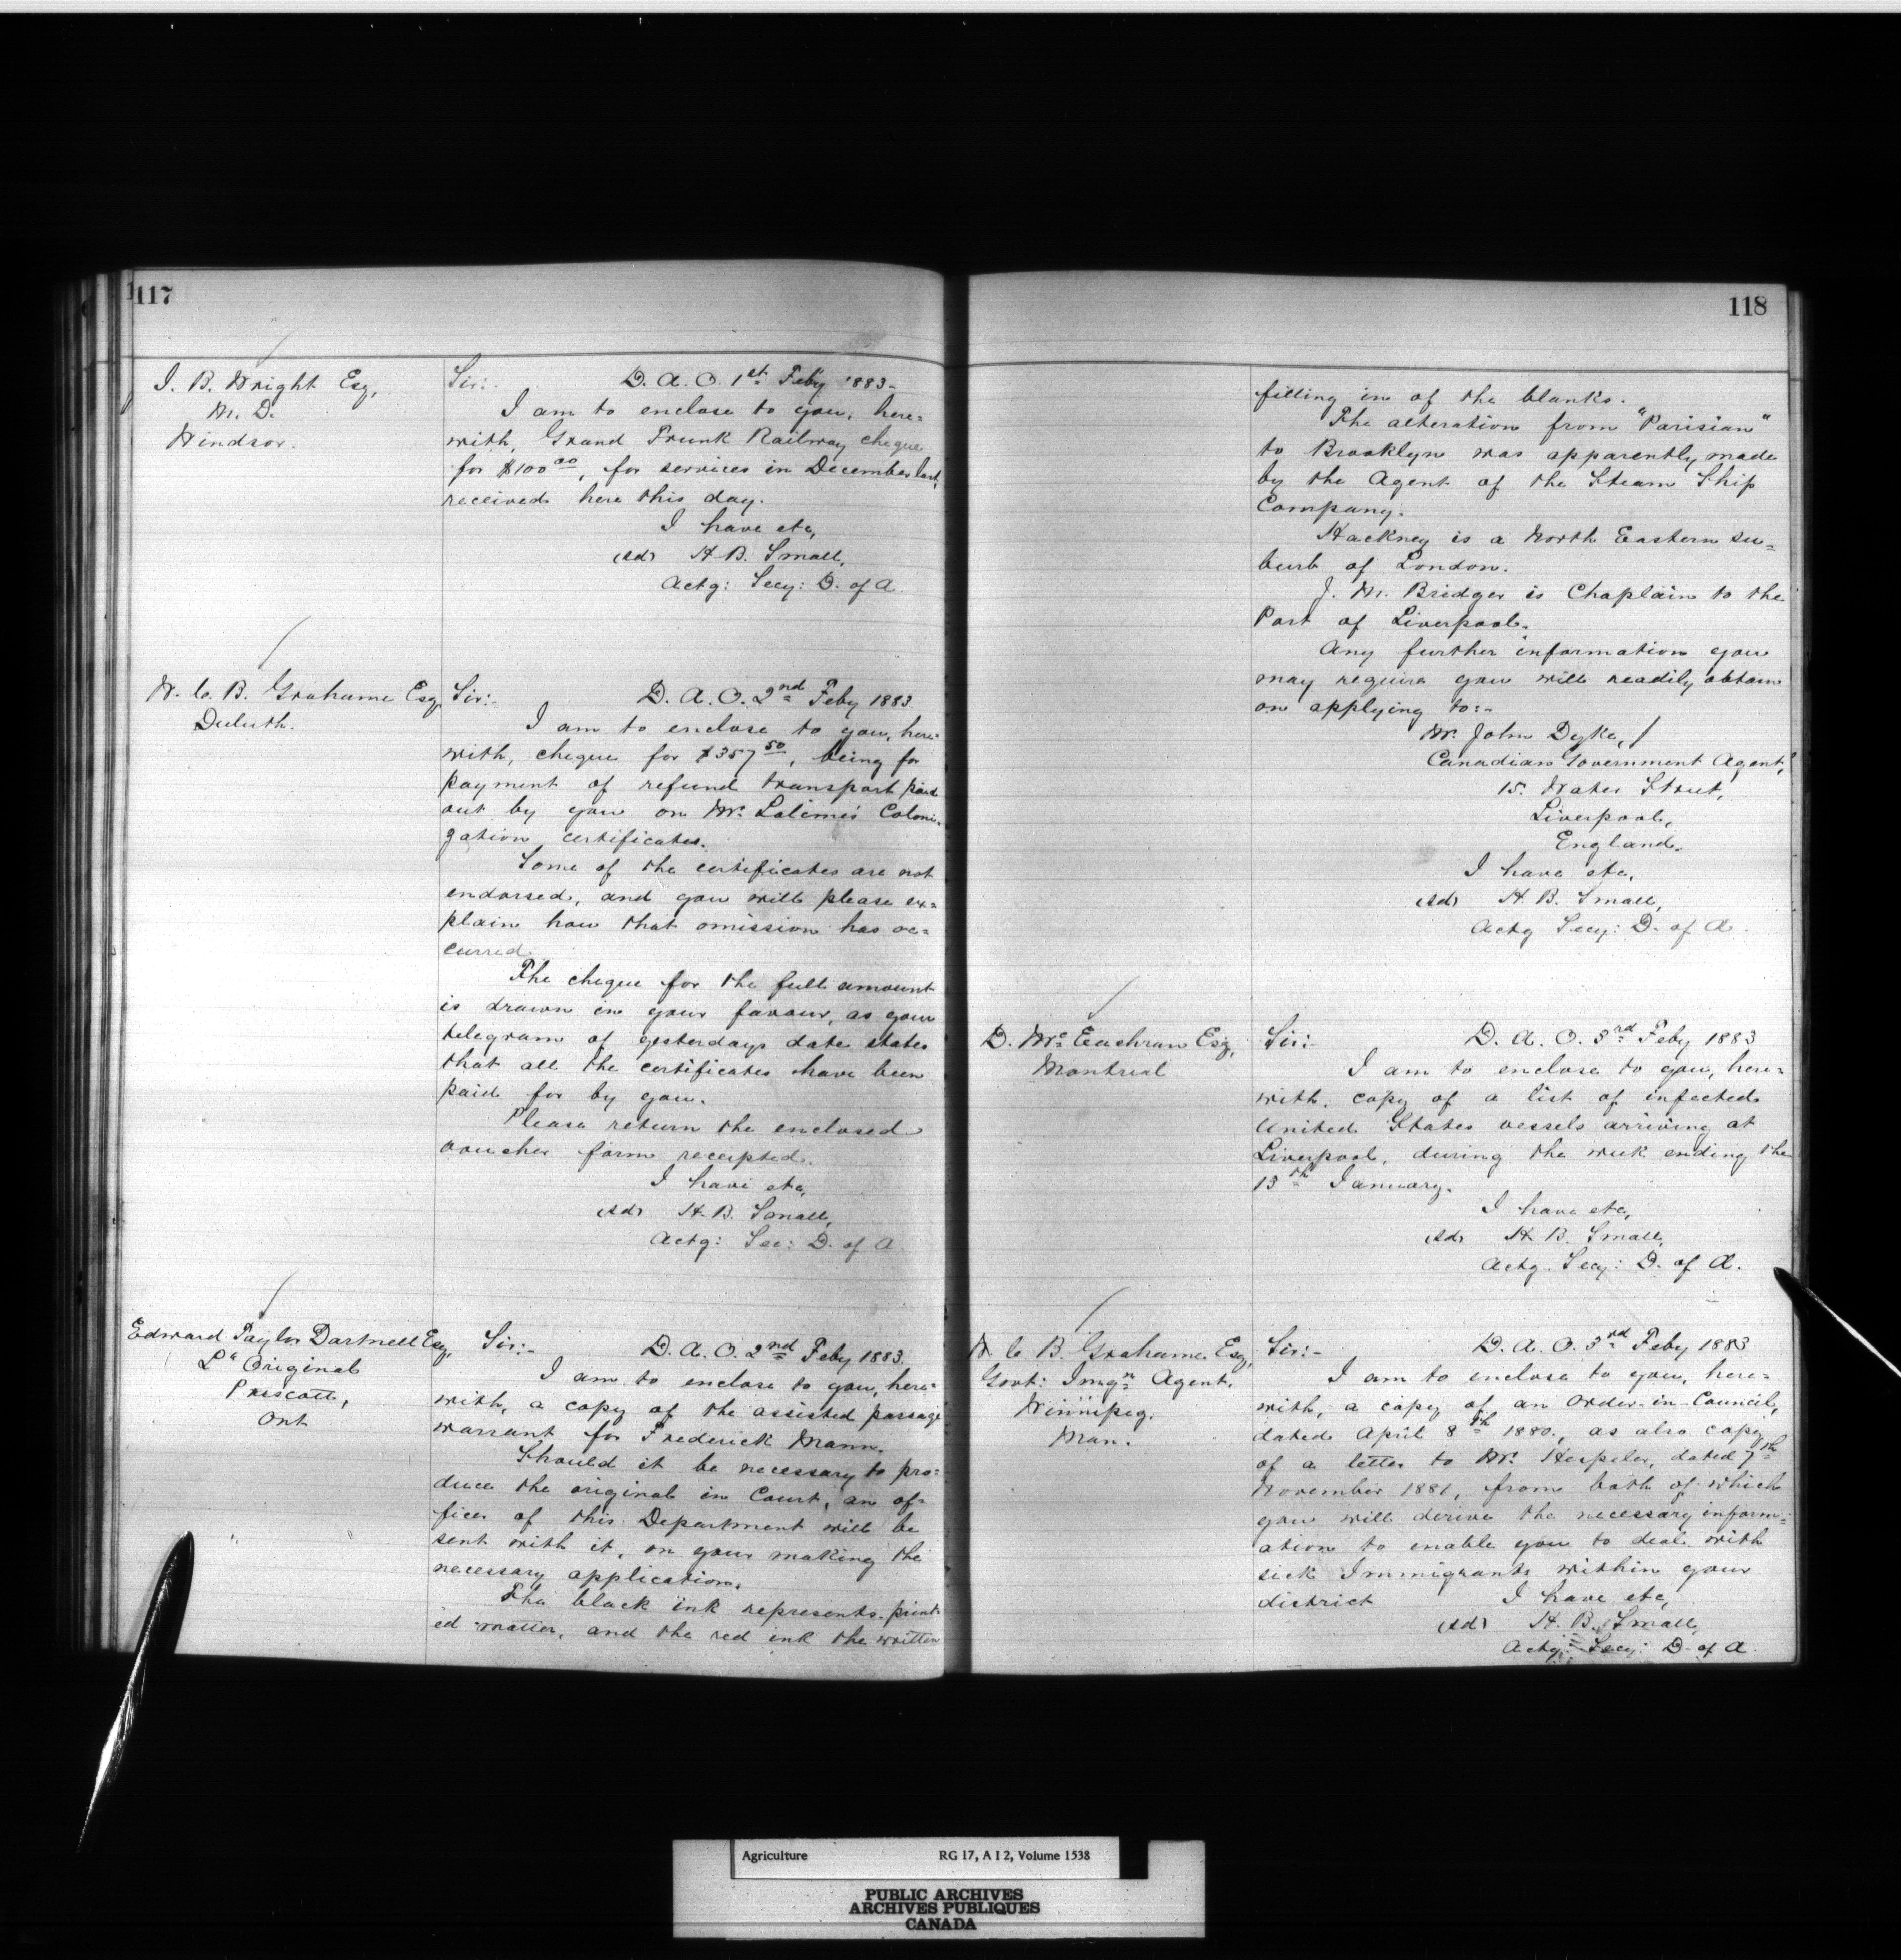 117
J. B. Wright Esq,
M. D.
Windsor.
Sir:- D. A. O. 1st Feby 1883-
I am to enclose to you, here=
with, Grand Trunk Railway cheque
for $100 00, for services in December last,
received here this day.
I have etc,
(sd) H. B. Small,
Actg: Secy: D. of A.
W. C. B. Grahame Esq
Duluth.
Sir:- D. A. O. 2nd Feby 1883
I am to enclose to you, here=
with, cheque for $357 50, being for
payment of refund transport paid
out by you on Mr. Lalime's Coloni=
zation certificates.
Some of the certificates are not
endorsed, and you will please ex=
plain how that omission has oc=
curred.
The cheque for the full amount
is drawn in your favour, as your
telegram of yesterdays date states
that all the certificates have been
paid for by you.
Please return the enclosed
voucher form receipted.
I have etc,
(sd) H. B. Small,
Actg: Sec: D. of A.
Edward Taylor Dartnell Esq,
L' Original
Prescott,
Ont
Sir:- D. A. O. 2nd Feby 1883.
I am to enclose to you, here=
with, a copy of the assisted passage
warrant for Frederick Mann.
Should it be necessary to pro=
duce the original in Court, an of=
ficer of this Department will be
sent with it, on your making the
necessary application.
The black ink represents print
ed matter, and the red ink the written
118
filling in of the blanks.
The alteration from "Parisian"
to Brooklyn was apparently made
by the Agent of the Steam Ship
Company.
Hackney is a North Eastern su=
burb of London.
J. M. Bridger is Chaplain to the
Port of Liverpool.
Any further information you
may require you will readily obtain
on applying to:-
Mr. John Dyke,
Canadian Government Agent,
15. Water Street,
Liverpool,
England.
I have etc,
(sd) H. B. Small,
Actg Secy: D. of A.
D. McEachran Esq,
Montreal
Sir:- D. A. O. 3rd Feby 1883
I am to enclose to you, here=
with, copy of a list of infected
United States vessels arriving at
Liverpool, during the week ending the
15th January.
I have etc,
(sd) H. B. Small,
Actg. Secy: D. of A.
W C B. Grahame. Esq,
Govt: Imgn Agent.
Winnipeg.
Man.
Sir:- D. A. O. 3rd Feby 1883
I am to enclose to you, here=
with, a copy of an Order-in-Council,
dated April 8th 1880., as also copy
of a letter to Mr. Hespeler, dated 7th
November 1881, from both of which
you will derive the necessary inform=
ation to enable you to deal with
sick Immigrants within your
district I have etc,
(sd) H. B. Small,
Actg: Secy: D. of A.
Agriculture RG 17, A I 2, Volume 1538
PUBLIC ARCHIVES
ARCHIVES PUBLIQUES
CANADA